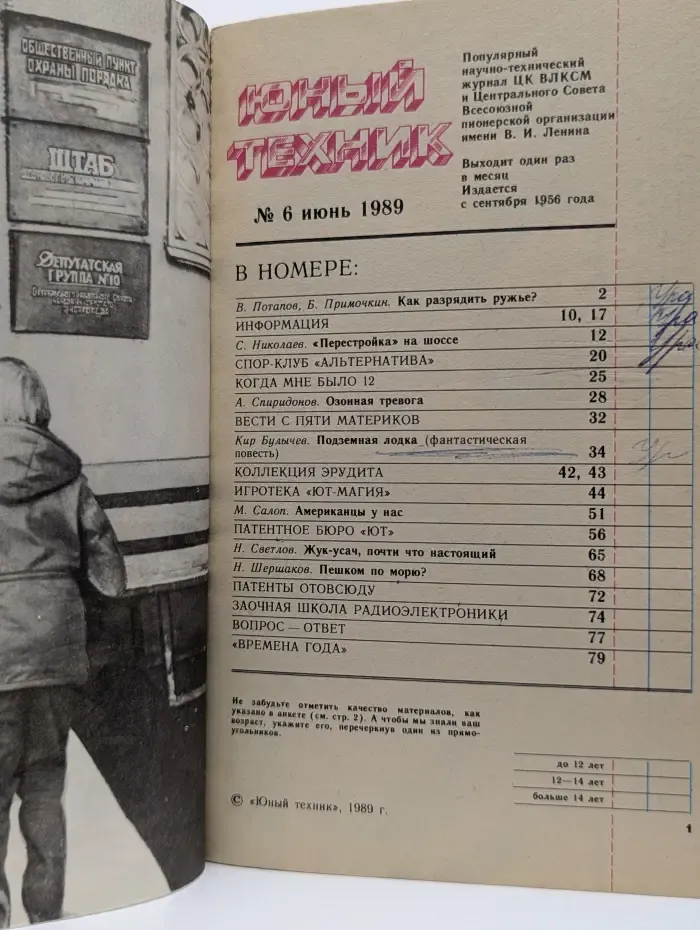 ОБЩЕСТВЕННЫЙ ПУНКТ
ОХРАНЫ ПОРЯДКА
ШТАБ
ДЕПУТАТСКАЯ
ГРУППА №10
ЮНЫЙ
ТЕХНИК
Популярный
научно-технический
журнал ЦК ВЛКСМ
и Центрального Совета
Всесоюзной
пионерской организации
имени В. И. Ленина
Выходит один раз
в месяц
Издается
с сентября 1956 года
№ 6 июнь 1989
В НОМЕРЕ:
В. Потапов, Б. Примочкин. Как разрядить ружье? 2
ИНФОРМАЦИЯ 10, 17
С. Николаев. «Перестройка» на шоссе 12
СПОР-КЛУБ «АЛЬТЕРНАТИВА» 20
КОГДА МНЕ БЫЛО 12 25
А. Спиридонов. Озонная тревога 28
ВЕСТИ С ПЯТИ МАТЕРИКОВ 32
Кир Булычев. Подземная лодка (фантастическая
повесть) 34
КОЛЛЕКЦИЯ ЭРУДИТА 42, 43
ИГРОТЕКА «ЮТ-МАГИЯ» 44
М. Салоп. Американцы у нас 51
ПАТЕНТНОЕ БЮРО «ЮТ» 56
Н. Светлов. Жук-усач, почти что настоящий 65
Н. Шершаков. Пешком по морю? 68
ПАТЕНТЫ ОТОВСЮДУ 72
ЗАОЧНАЯ ШКОЛА РАДИОЭЛЕКТРОНИКИ 74
ВОПРОС — ОТВЕТ 77
«ВРЕМЕНА ГОДА» 79
Не забудьте отметить качество материалов, как
указано в анкете (см. стр. 2). А чтобы мы знали ваш
возраст, укажите его, перечеркнув один из прямо-
угольников.
до 12 лет
12—14 лет
больше 14 лет
© «Юный техник», 1989 г.
1